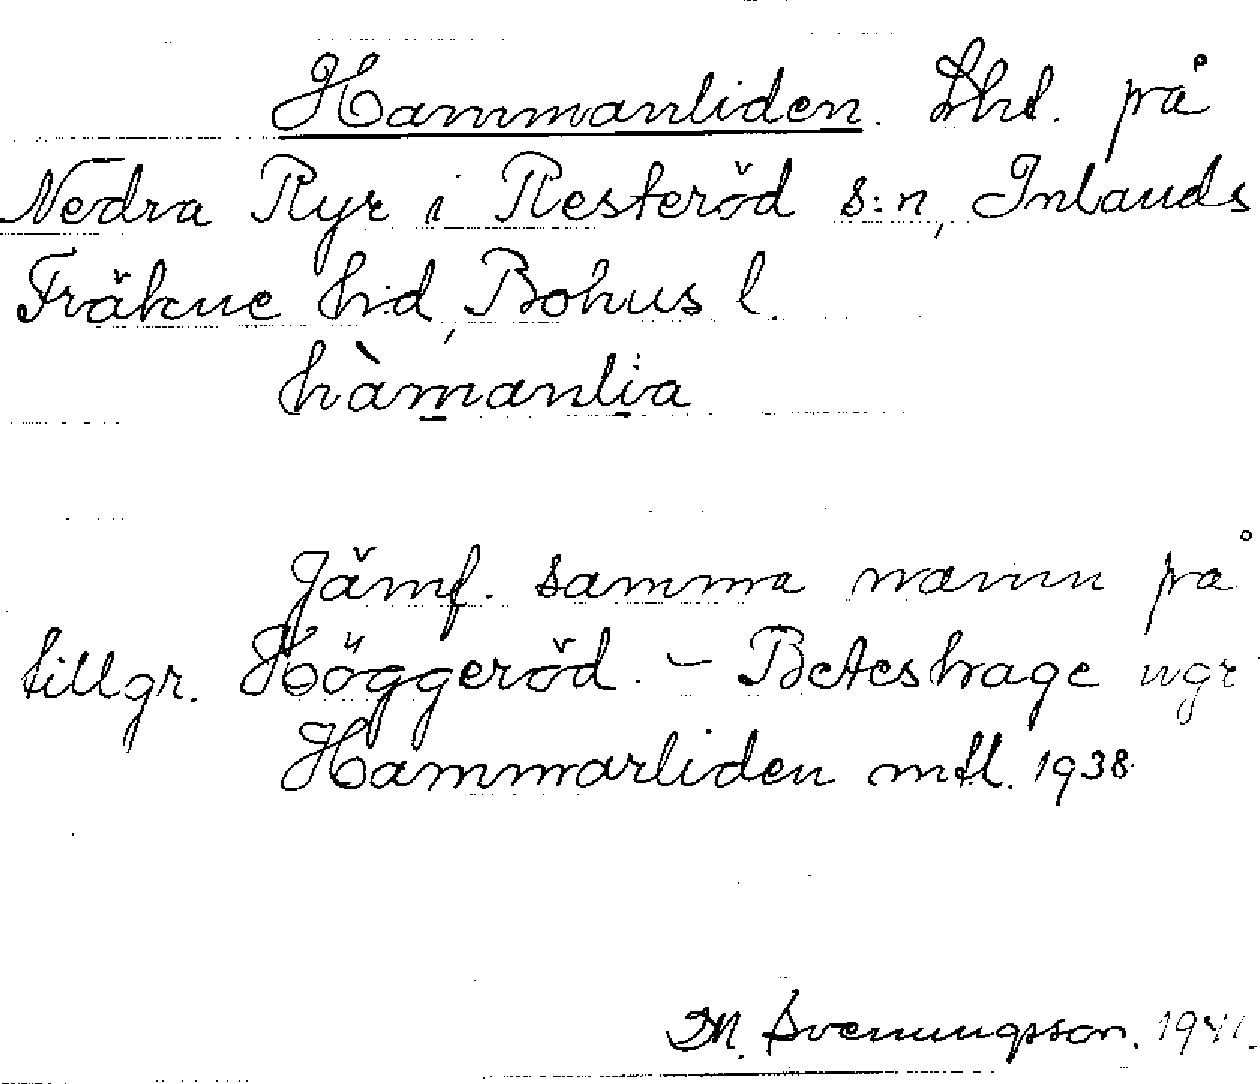 Hammanliden. Lhl. på
Nedra Ryr i Resteröd s:n, Inlands
Fräkne hd, Bohus l.
hàmanlia
Jämf. samma namn på
tillgr. Höggeröd. – Beteshage
Hammarliden mtl. 1938.
M. Svenungsson. 1941.